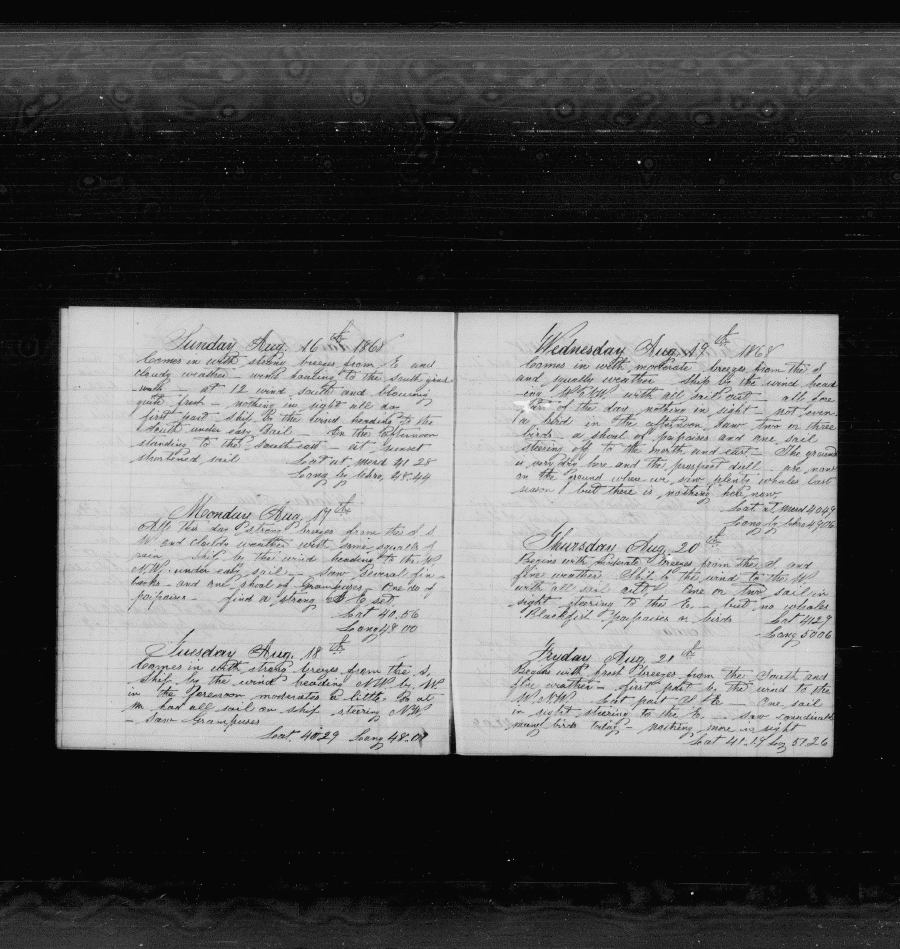 Sunday Aug. 16th 1868
Comes in with strong breezes from E and
cloudy weather wind hauling to the south
at 12 wind south and blowing
quite fresh - nothing in sight all day
first part ship by the wind heading to the
south under easy sail. In the afternoon
standing to the southeast - at sunset
shortened sail Lat at merd 41 28
Long by Chro. 48.44
Monday Aug. 17th
All this day strong breezes from the S S
W and cloudy weather with some squalls of
rain ship by the wind heading to the W
N.W. under easy sail - Saw several fin
backs - and one shoal of Grampuses - One do of
poipaises - find a strong E set
Lat 40.56
Long 48 00
Tuesday Aug. 18th
Comes in with strong breezes from the S.
Ship by the wind heading NW by W.
in the forenoon moderates a little. So at
m had all sail on ship steering NW
- Saw Grampuses
Lat. 40 29 Long 48.07
Wednesday Aug. 19th 1868
Comes in with moderate breezes from the S
and squally weather ship by the wind head
ing WNW with all sail out - all fore
part of the day nothing in sight - not even
a bird in the afternoon saw two or three
birds - a shoal of poipaises and one sail
steering off to the north and east - The ground
is very dry here and the prospect dull - are now
on the ground where we saw plenty whales last
season but there is nothing here now
Lat at Merd 40 49
Long by Chro 49 06
Thursday Aug. 20th
Begins with moderate breezes from the S. and
fine weather Ship by the wind to the W
with all sail out One or two sail in
sight steering to the E. - but no whales
Blackfish poipaises or birds Lat 41 29
Long 50 06
Fryday Aug. 21st
Begins with fresh breezes from the South and
fine weather - first part by the wind to the
W NW - last part S & E - One sail
in sight steering to the E. - saw considerable
many birds today - nothing more in sight
Lat 41.17 Log 51.26